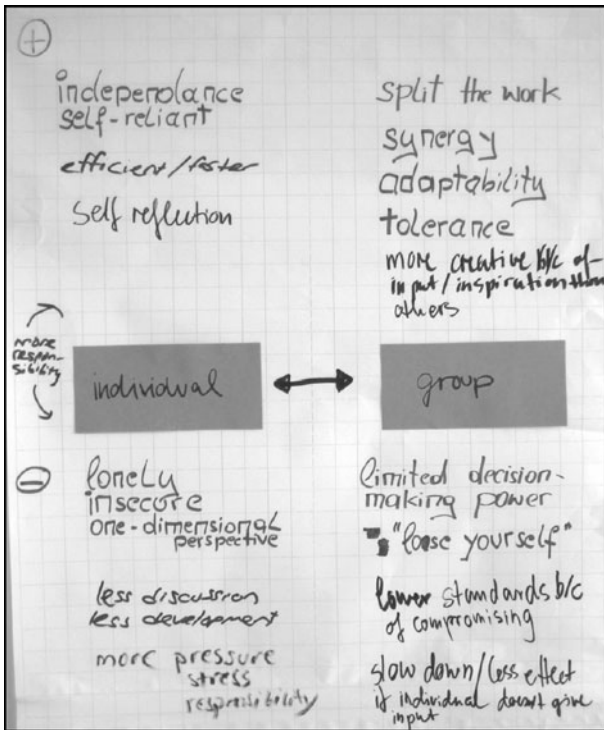 +
independance
self-reliant
efficient/faster
self reflection
split the work
synergy
adaptability
tolerance
more creative b/c of
input/inspiration
others
more
respon-
sibility
individual
group
-
lonely
insecure
one-dimensional
perspective
less discussion
less development
more pressure
stress
responsibility
limited decision-
making power
"loose yourself"
lower standards b/c
of compromising
slow down/less effect
if individual doesn't give
input